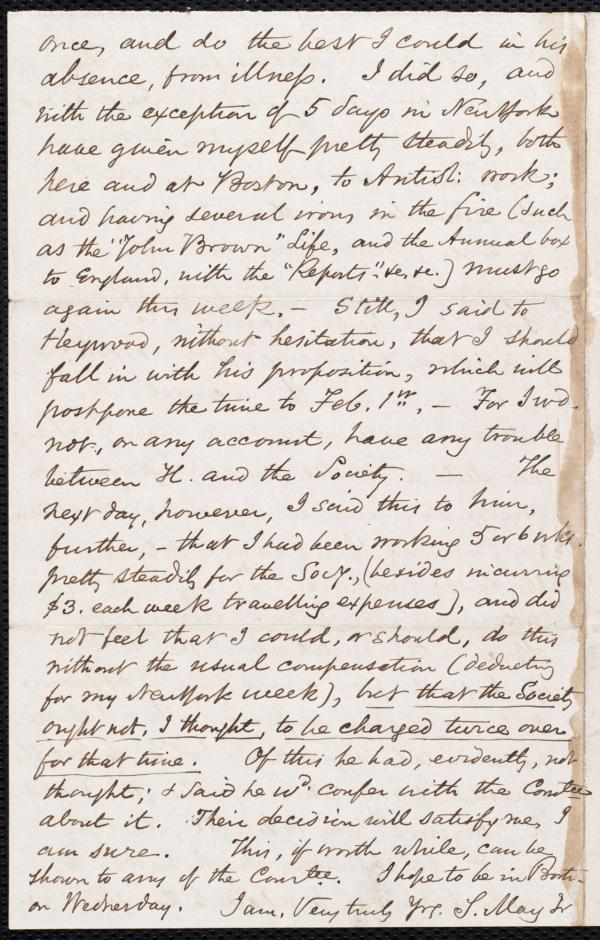 once, and do the best I could in his
absence, from illness. I did so, and
with the exception of 5 days in New York
have given myself pretty steadily, both
here and at Boston, to Antisl: work;
and having several irons in the fire (such
as the "John Brown" Life, and the Annual box
to England, with the "Reports" &c, &c.) must go
again this week. — Still, I said to
Heywood, without hesitation, that I should
fall in with his proposition, which will
postpone the time to Feb. 1st. — For I wd.
not, on any account, have any trouble
between H. and the Society. — The
next day, however, I said this to him,
further, - that I had been working 5 or 6 wks.
pretty steadily for the Socy., (besides incurring
$3. each week travelling expenses), and did
not feel that I could, or should, do this
without the usual compensation (deducting
for my New York week), but that the Society
ought not, I thought, to be charged twice over
for that time. Of this he had, evidently, not
thought; & said he wd. confer with the Comtee
about it. Their decision will satisfy me, I
am sure. This, if worth while, can be
shown to any of the Comtee. I hope to be in Bost-
on Wednesday. I am, Very truly Yrs. S. May Jr